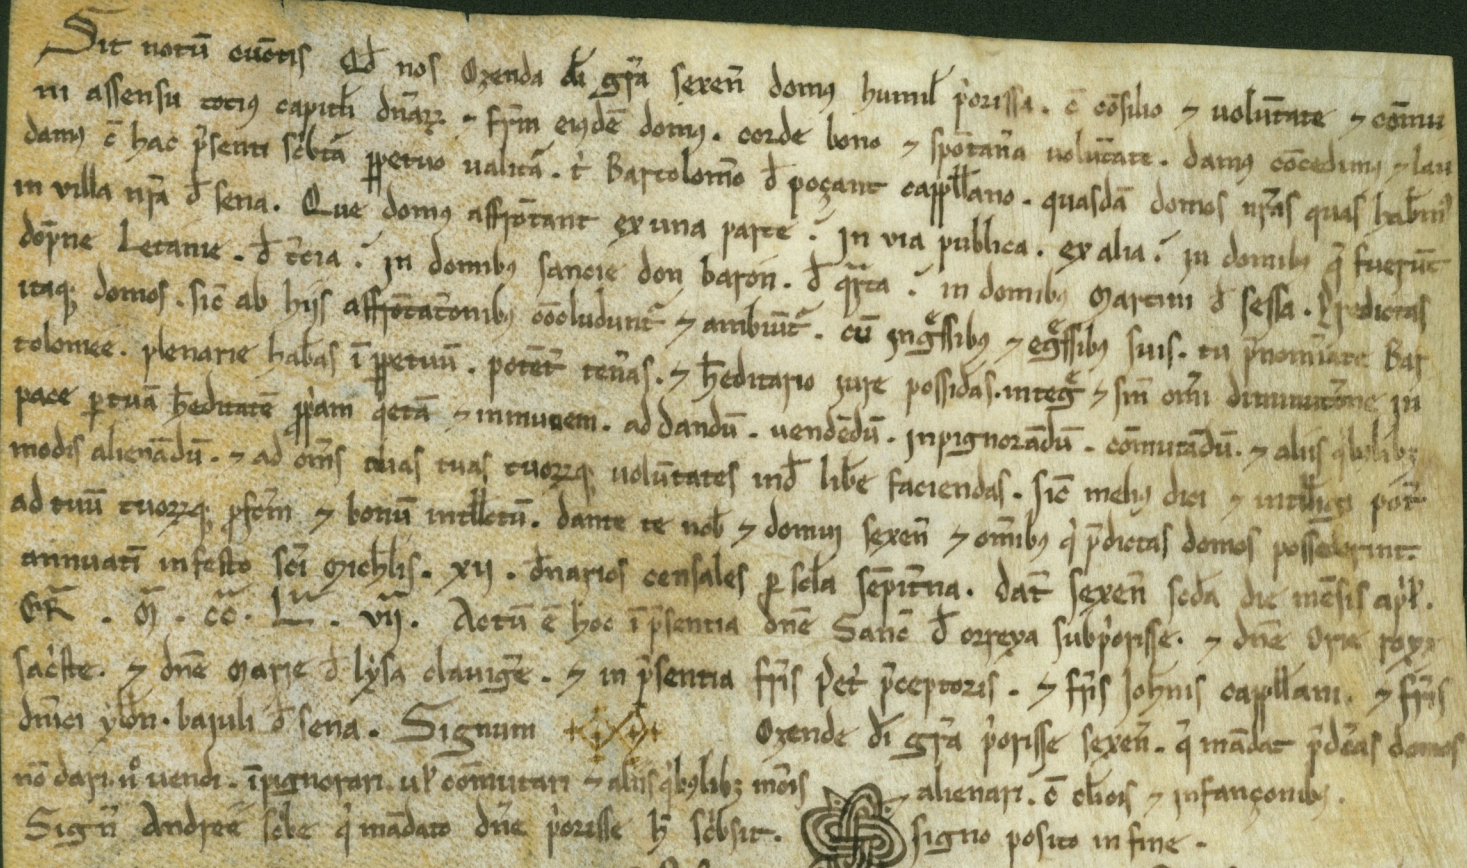 Sit notū cūctis Qd̄ nos Ozenda dī gr̄a sexen̄ domꝰ humil̄ p̄orissa. c̄ cōsilio ⁊ volūtate ⁊ cōmu
ni assensu totiꝰ capitl̄i dn̄aꝝ ⁊ fr̄m eiꝰdē domꝰ. corde bono ⁊ spōtan̄a volūtate. damꝰ cōcedimꝰ ⁊ lau
damꝰ c̄ hac p̄senti sc̄btā ꝑpetuo valitā. t̄ Bartolom̄o d̄ poçant cappll̄ano. quasdā domos nr̄as quas hab̄mꝰ
in villa nr̄a d̄ sena. Que domꝰ affrōtant ex una parte. in via publica. ex alia. in domibꝰ q̄ fuerūt
dōpne Letanie. d̄ t̄cia. in domibꝰ sancie don baron. d̄ q̄rta. in domibꝰ Martini d̄ sessa. Predictas
itaqꝫ domos. sic̄ ab hiis affrōtatōnibꝰ cōcludunt̄ ⁊ ambiūt̄. cū ingssibꝰ ⁊ egssibꝰ suis. tu p̄nominate Bar
tolomee. plenarie hab̄as ī ꝑpetuū. potēt̄ ten̄as. ⁊ h̄editario iure possidas. integ ⁊ sn̄ om̄i diminutōne in
pace ꝑ tuā h̄editatē ꝓp̄am q̄etā ⁊ inmunem. ad dandū. vendēdū. inpignorādū. cōmutādū. ⁊ aliis q̄bꝰlibꝫ
modis alienādū. ⁊ ad om̄s tuas tuoꝝqꝫ volūtates ind̄ lib̄e faciendas. sic̄ meliꝰ dici ⁊ intll̄igi pot̄
ad tuū tuoꝝqꝫ ꝓfc̄m ⁊ bonū intll̄ctū. dante te nob̄ ⁊ domui sexen̄ ⁊ om̄ibꝰ q̄ p̄dictas domos possēderint
annuatī in festo sc̄i Mich̄lis. xii. dn̄arios censales ꝑ scl̄a sēpit̄na. dat̄ sexen̄ scd̄a die mēsis ap̄l.
ER̄. M̄. cc̄. L. vii. Actū ē hoc ī p̄sentia dn̄e Sanc̄ d̄ orreya subp̄orisse. ⁊ dn̄e Orie
sac̄ste. ⁊ dn̄e Marie d̄ lysa claviḡe. ⁊ in p̄sentia fr̄is Pet̄ p̄ceptoris. ⁊ fr̄is Ioh̄nis cappll̄ani. ⁊ fr̄is
dn̄ici bajuli d̄ sena. Signum Ozende dī gr̄a p̄orisse sexen̄. q̄ mādat p̄dc̄as domos
nō dari. n̄ vendi. īpignorari. vl̄ cōmutari ⁊ aliis q̄bꝰlibꝫ mōis alienari. c̄ cl̄icis ⁊ infançonibꝰ.
Signū Andree sc̄be q̄ mādato dn̄e p̄orisse h̄ sc̄bsit. signo posito in fine.